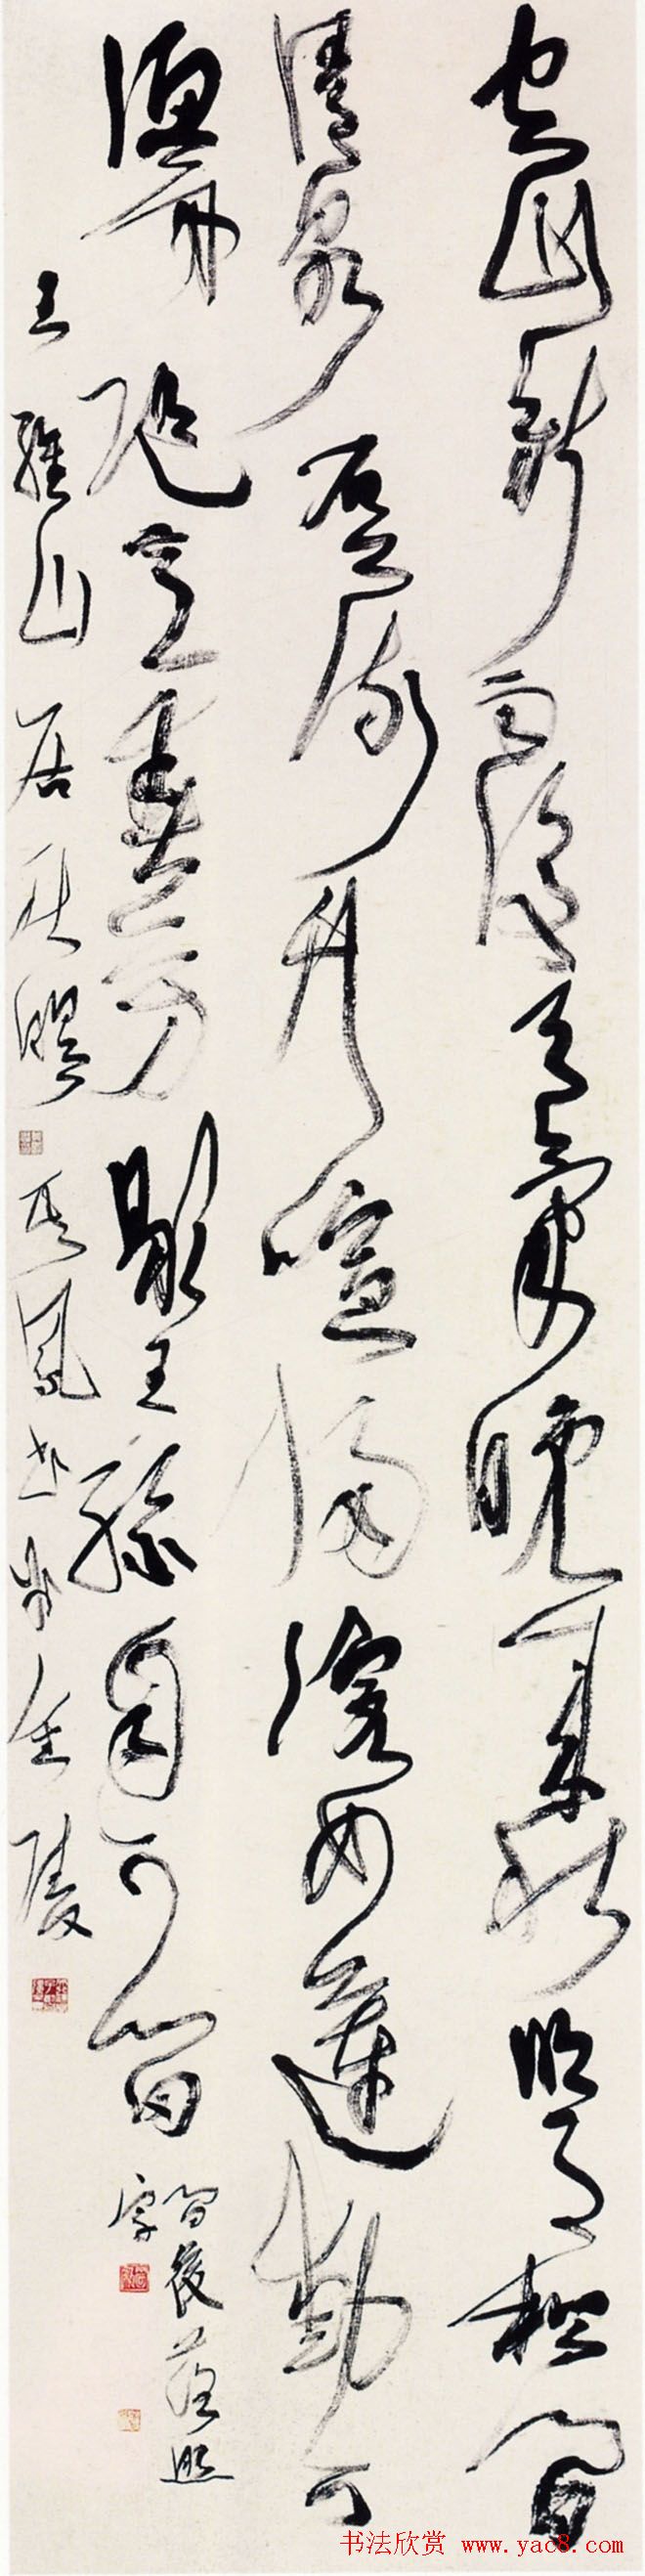 空山新雨後天氣晚來秋明月松間
清泉石上流竹喧歸浣女蓮動下
漁舟隨意春芳歇王孫自可留
間後落照
字
王維山居秋暝
鳳書於金陵
书法欣赏 www.yac8.com